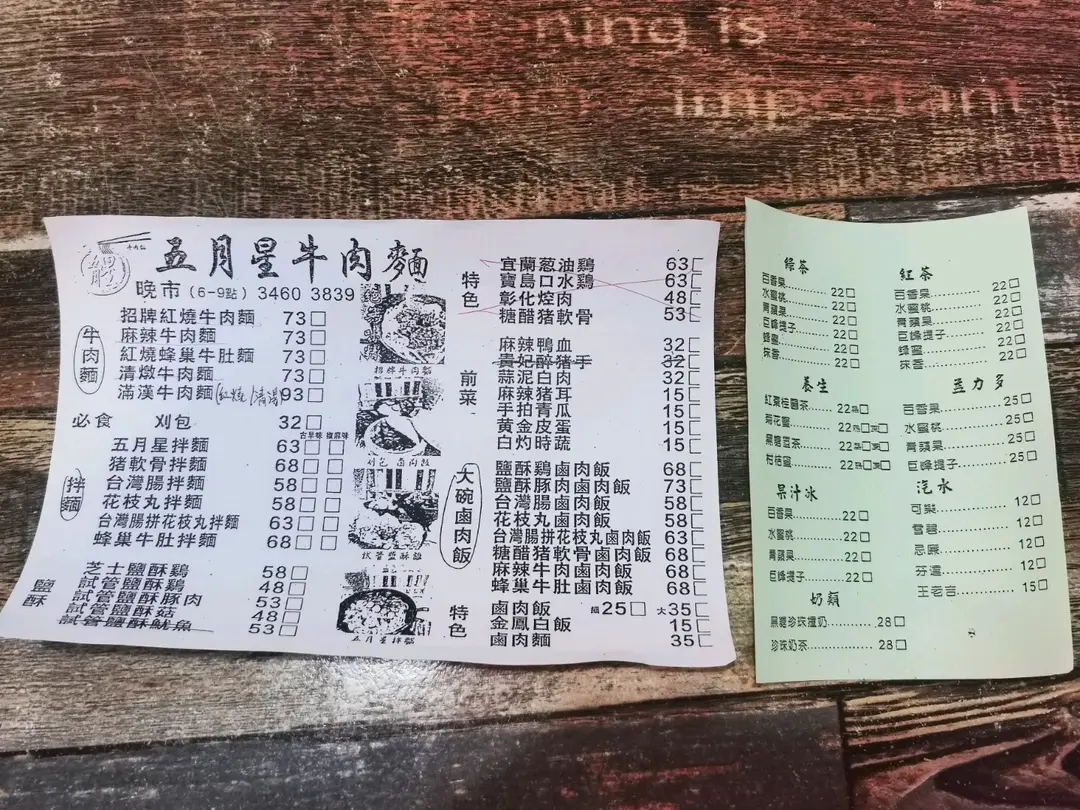 ning is
important
五月星牛肉麵
晚市 (6-9點) 3460 3839
牛肉麵
招牌紅燒牛肉麵 73□
麻辣牛肉麵 73□
紅燒蜂巢牛肚麵 73□
清燉牛肉麵 73□
滿漢牛肉麵(紅燒/清湯) 93□
必食 刈包 32□
拌麵
五月星拌麵 63□□
豬軟骨拌麵 68□□
台灣腸拌麵 58□□
花枝丸拌麵 58□□
台灣腸拼花枝丸拌麵 63□□
蜂巢牛肚拌麵 68□□
鹽酥
芝士鹽酥鷄 58□
試管鹽酥鷄 48□
試管鹽酥豚肉 53□
試管鹽酥菇 48□
試管鹽酥魷魚 53□
招牌牛肉麵
刈包 鹵肉飯
試管鹽酥雞
五月星拌麵
特色
宜蘭葱油鷄 63□
寶島口水鷄 63□
彰化焢肉 48□
糖醋猪軟骨 53□
前菜
麻辣鴨血 32□
貴妃醉豬手 32□
蒜泥白肉 32□
麻辣猪耳 15□
手拍青瓜 15□
黄金皮蛋 15□
白灼時蔬 15□
大碗鹵肉飯
鹽酥鷄鹵肉飯 68□
鹽酥豚肉鹵肉飯 73□
台灣腸鹵肉飯 58□
花枝丸鹵肉飯 58□
台灣腸拼花枝丸鹵肉飯 63□
糖醋猪軟骨鹵肉飯 68□
麻辣牛肉鹵肉飯 68□
蜂巢牛肚鹵肉飯 68□
特色
鹵肉飯 細25□ 大35□
金鳳白飯 15□
鹵肉麵 35□
綠茶
百香果 22□
水蜜桃 22□
青蘋果 22□
巨峰提子 22□
蜂蜜 22□
抹香 22□
紅茶
百香果 22□
水蜜桃 22□
青蘋果 22□
巨峰提子 22□
蜂蜜 22□
抹香 22□
養生
紅棗桂圓茶 22熱□
菊花蜜 22熱□凍□
黑糖薑茶 22熱□凍□
柑桔蜜 22熱□凍□
益力多
百香果 25□
水蜜桃 25□
青蘋果 25□
巨峰提子 25□
果汁冰
百香果 22□
水蜜桃 22□
青蘋果 22□
巨峰提子 22□
汽水
可樂 12□
雪碧 12□
忌廉 12□
芬達 12□
王老吉 15□
奶類
黑糖珍珠撞奶 28□
珍珠奶茶 28□